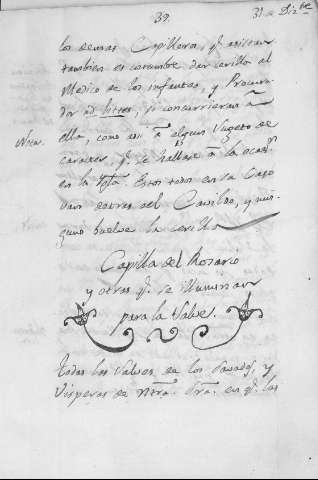 39.
31 de Dizbre
los demas Capilleros, q. asistan
tambien es costumbre dar cerillo al
Medico de los infantes, y Procura-
dor ad litem, si concurrieran a
Nota.
ella, como asi a algun Sugeto de
caracter, q. se hallase a la ocasn
en la Ygla. Estos todos en su caso
van detras del Cavildo, y nin-
guno buelve la cerilla
Capilla del Rosario
y otras q. se illuminan
para la Salve.
todas las Salves de los Savados, y
Visperas de Ntra. Sra. en q. las